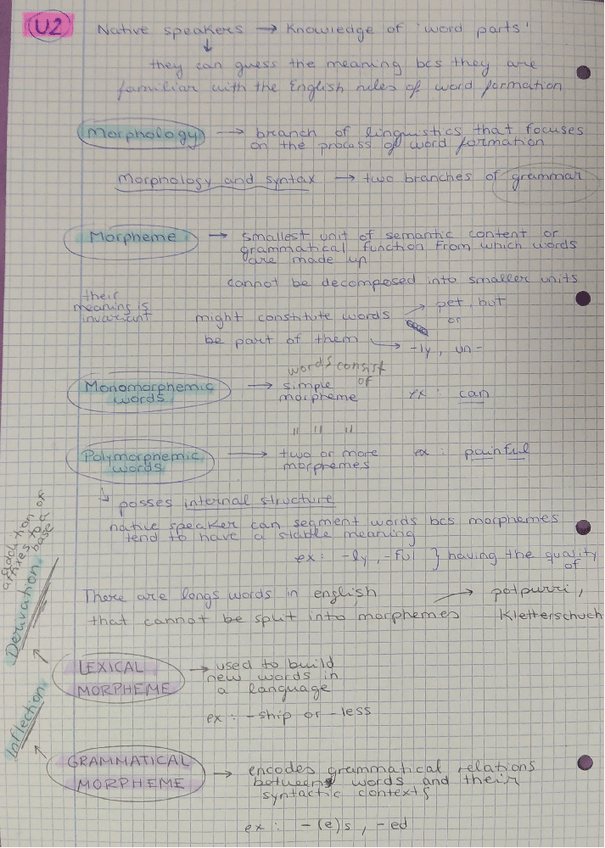 U2
Native speakers → Knowledge of 'word parts'
↓
they can guess the meaning bcs they are
familiar with the English rules of word formation
Morphology → branch of linguistics that focuses
on the process of word formation
Morphology and syntax → two branches of grammar
Morpheme → smallest unit of semantic content or
grammatical function from which words
are made up
cannot be decomposed into smaller units
their
meaning is
invariant
might constitute words → pet, but
or
be part of them → -ly, un-
words consist
of
Monomorphemic
words → simple
morpheme
ex: can
" " "
Polymorphemic
words → two or more
morphemes
ex: painful
↳ posses internal structure
native speaker can segment words bcs morphemes
tend to have a stable meaning
ex: -ly, -ful } having the quality
of
There are longs words in english → potpurri,
that cannot be split into morphemes Kletterschuch
addition of
affixes to a
base
Derivation
↑
Inflection
LEXICAL
MORPHEME → used to build
new words in
a language
ex: -ship or -less
GRAMMATICAL
MORPHEME → encodes grammatical relations
between words and their
syntactic contexts
ex: -(e)s, -ed